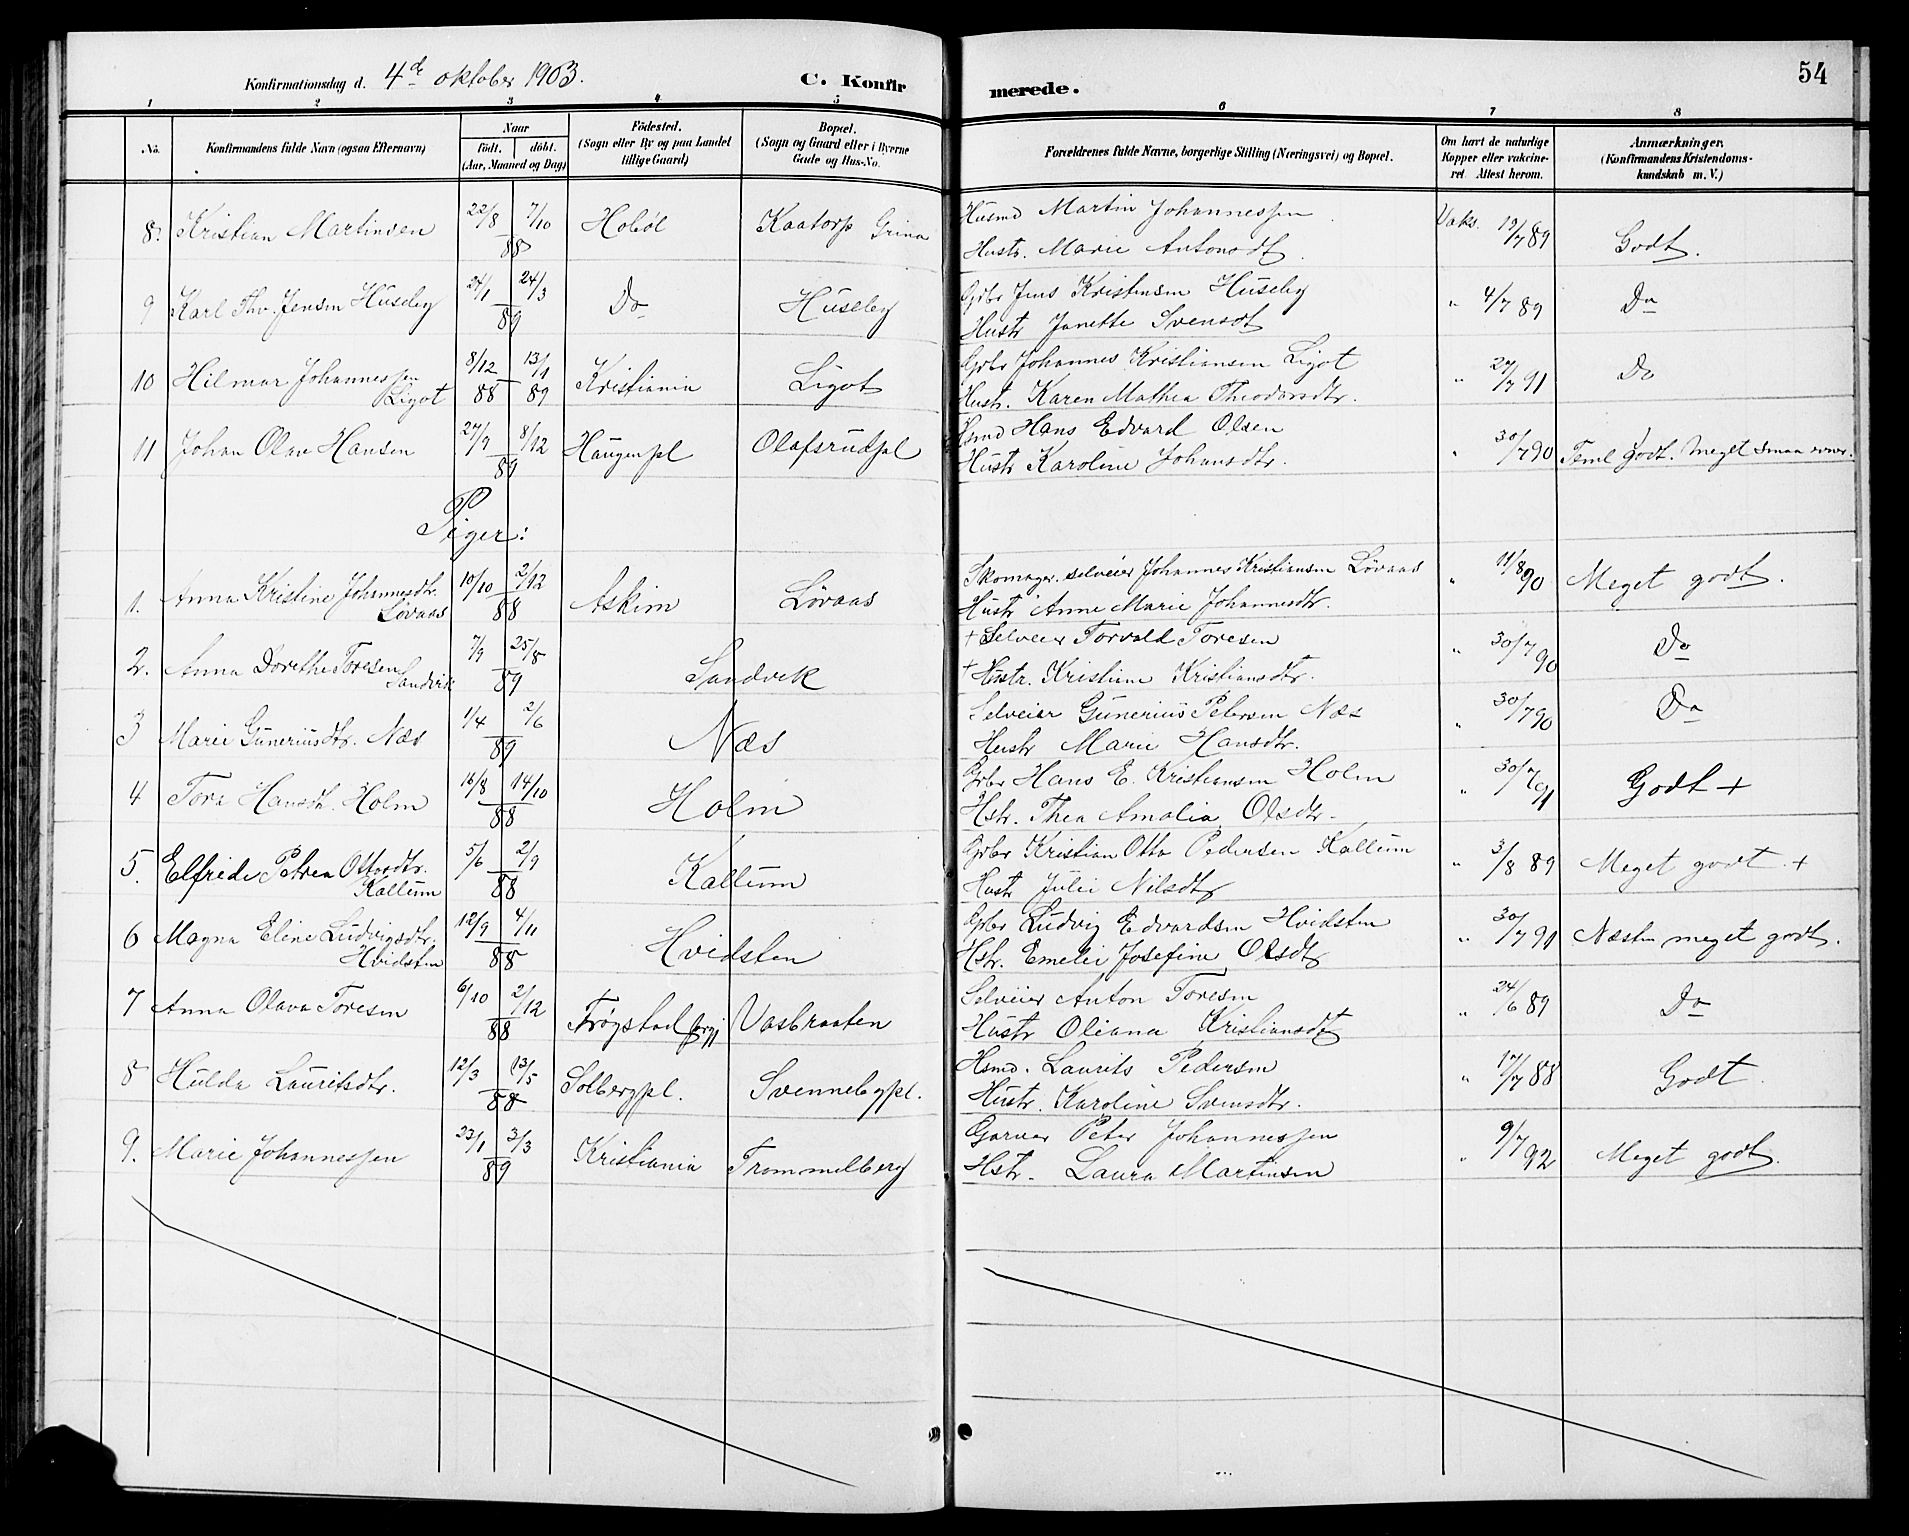 54
Konfirmationsdag d. 4de oktober 1903. C. Konfirmerede.
1 2 3 4 5 6 7 8
No. Konfirmandens fulde Navn (ogsaa Efternavn) Naar født. døbt. (Aar, Maaned og Dag) Fødested. (Sogn eller By og paa Landet tillige Gaard) Bopæl. (Sogn og Gaard eller i Byerne Gade og Hus-No. Forældrenes fulde Navne, borgerlige Stilling (Næringsvei) og Bopæl. Om havt de naturlige Kopper eller vakcineret. Attest herom. Anmærkninger. (Konfirmandens Kristendomskundskab m. V.)
8. Kristian Martinsen 22/8 7/10 88 Hobøl Kaatorp Grina Husmd Martin Johannessen Vaks. 19/7 89 Godt.
Hustr. Marie Antonsdt.
9 Karl Thv. Jensen Huseby 24/1 24/3 89 Do Huseby Grbr Jens Kristensen Huseby " 4/7 89 Do
Hustr Janette Svensdt
10 Hilmar Johannessen Ligot 8/12 88 13/1 89 Kristiania Ligot Grbr Johannes Kristiansen Ligot " 27/7 91 Do
Hustr. Karen Mathea Theodorsdtr.
11 Johan Olav Hansen 27/9 8/12 89 Haugenpl Olafsrudpl Hsmd Hans Edvard Olsen " 30/7 90 Teml godt. Meget smaa evner.
Hustr Karoline Johansdtr.
Piger:
1. Anna Kristine Johannesdtr. Løvaas 10/10 2/12 88 Askim Løvaas Skomager. selveier Johannes Kristiansen Løvaas " 11/8 90 Meget godt.
Hustr Anne Marie Johannesdtr.
2. Anna Dorethe Toresen Sandvik 7/9 25/8 89 Sandvik + Selveier Torvald Toresen " 30/7 90 Do
+ Hustr. Kristine Kristiansdtr.
3 Marie Guneriusdtr. Næs 1/4 2/6 89 Næs Selveier Gunerius Petersen Næs " 30/7 90 Do
Hustr Marie Hansdtr.
4 Tora Hansdt. Holm 16/8 14/10 88 Holm Grbr Hans E. Kristiansen Holm " 30/7 91 Godt +
Hstr. Thea Amalia Olsdtr.
5. Elfride Petrea Ottosdtr. Kallum 5/6 2/9 88 Kallum Grbr Kristian Otto Pedersen Kallum " 3/8 89 Meget godt. +
Hustr Julie Nilsdtr
6 Magna Eline Ludvigsdtr. Hvidsten 12/9 4/11 88 Hvidsten Grbr Ludvig Edvardsen Hvidsten " 30/7 91 Næsten meget godt.
Hstr. Emelie Josefine Olsdtr
7 Anna Olava Toresen 6/10 2/12 88 Trøgstad prgj Vasbraaten Selveier Anton Toresen " 24/6 89 Do
Hustr Oliana Kristiansdt
8 Hulda Lauritsdtr. 12/3 13/5 88 Solbergpl. Svennebypl. Hsmd. Laurits Pedersen " 17/7 88 Godt
Hustr. Karoline Svensdtr.
9. Marie Johannessen 23/1 3/3 89 Kristiania Trommelberg Garver Peter Johannessen " 9/7 92 Meget godt.
Hstr. Laura Martinsen